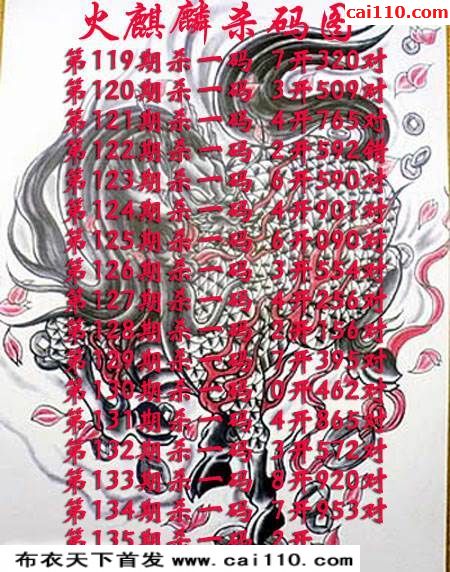 cai110.com
火麒麟杀码图
第119期杀一码 7开320对
第120期杀一码 3开509对
第121期杀一码 4开765对
第122期杀一码 2开592错
第123期杀一码 6开590对
第124期杀一码 4开901对
第125期杀一码 6开090对
第126期杀一码 3开554对
第127期杀一码 4开256对
第128期杀一码 2开156对
第129期杀一码 1开395对
第130期杀一码 0开462对
第131期杀一码 4开865对
第132期杀一码 3开572对
第133期杀一码 8开920对
第134期杀一码 7开953对
第135期杀一码 2开
布衣天下首发 www.cai110.com